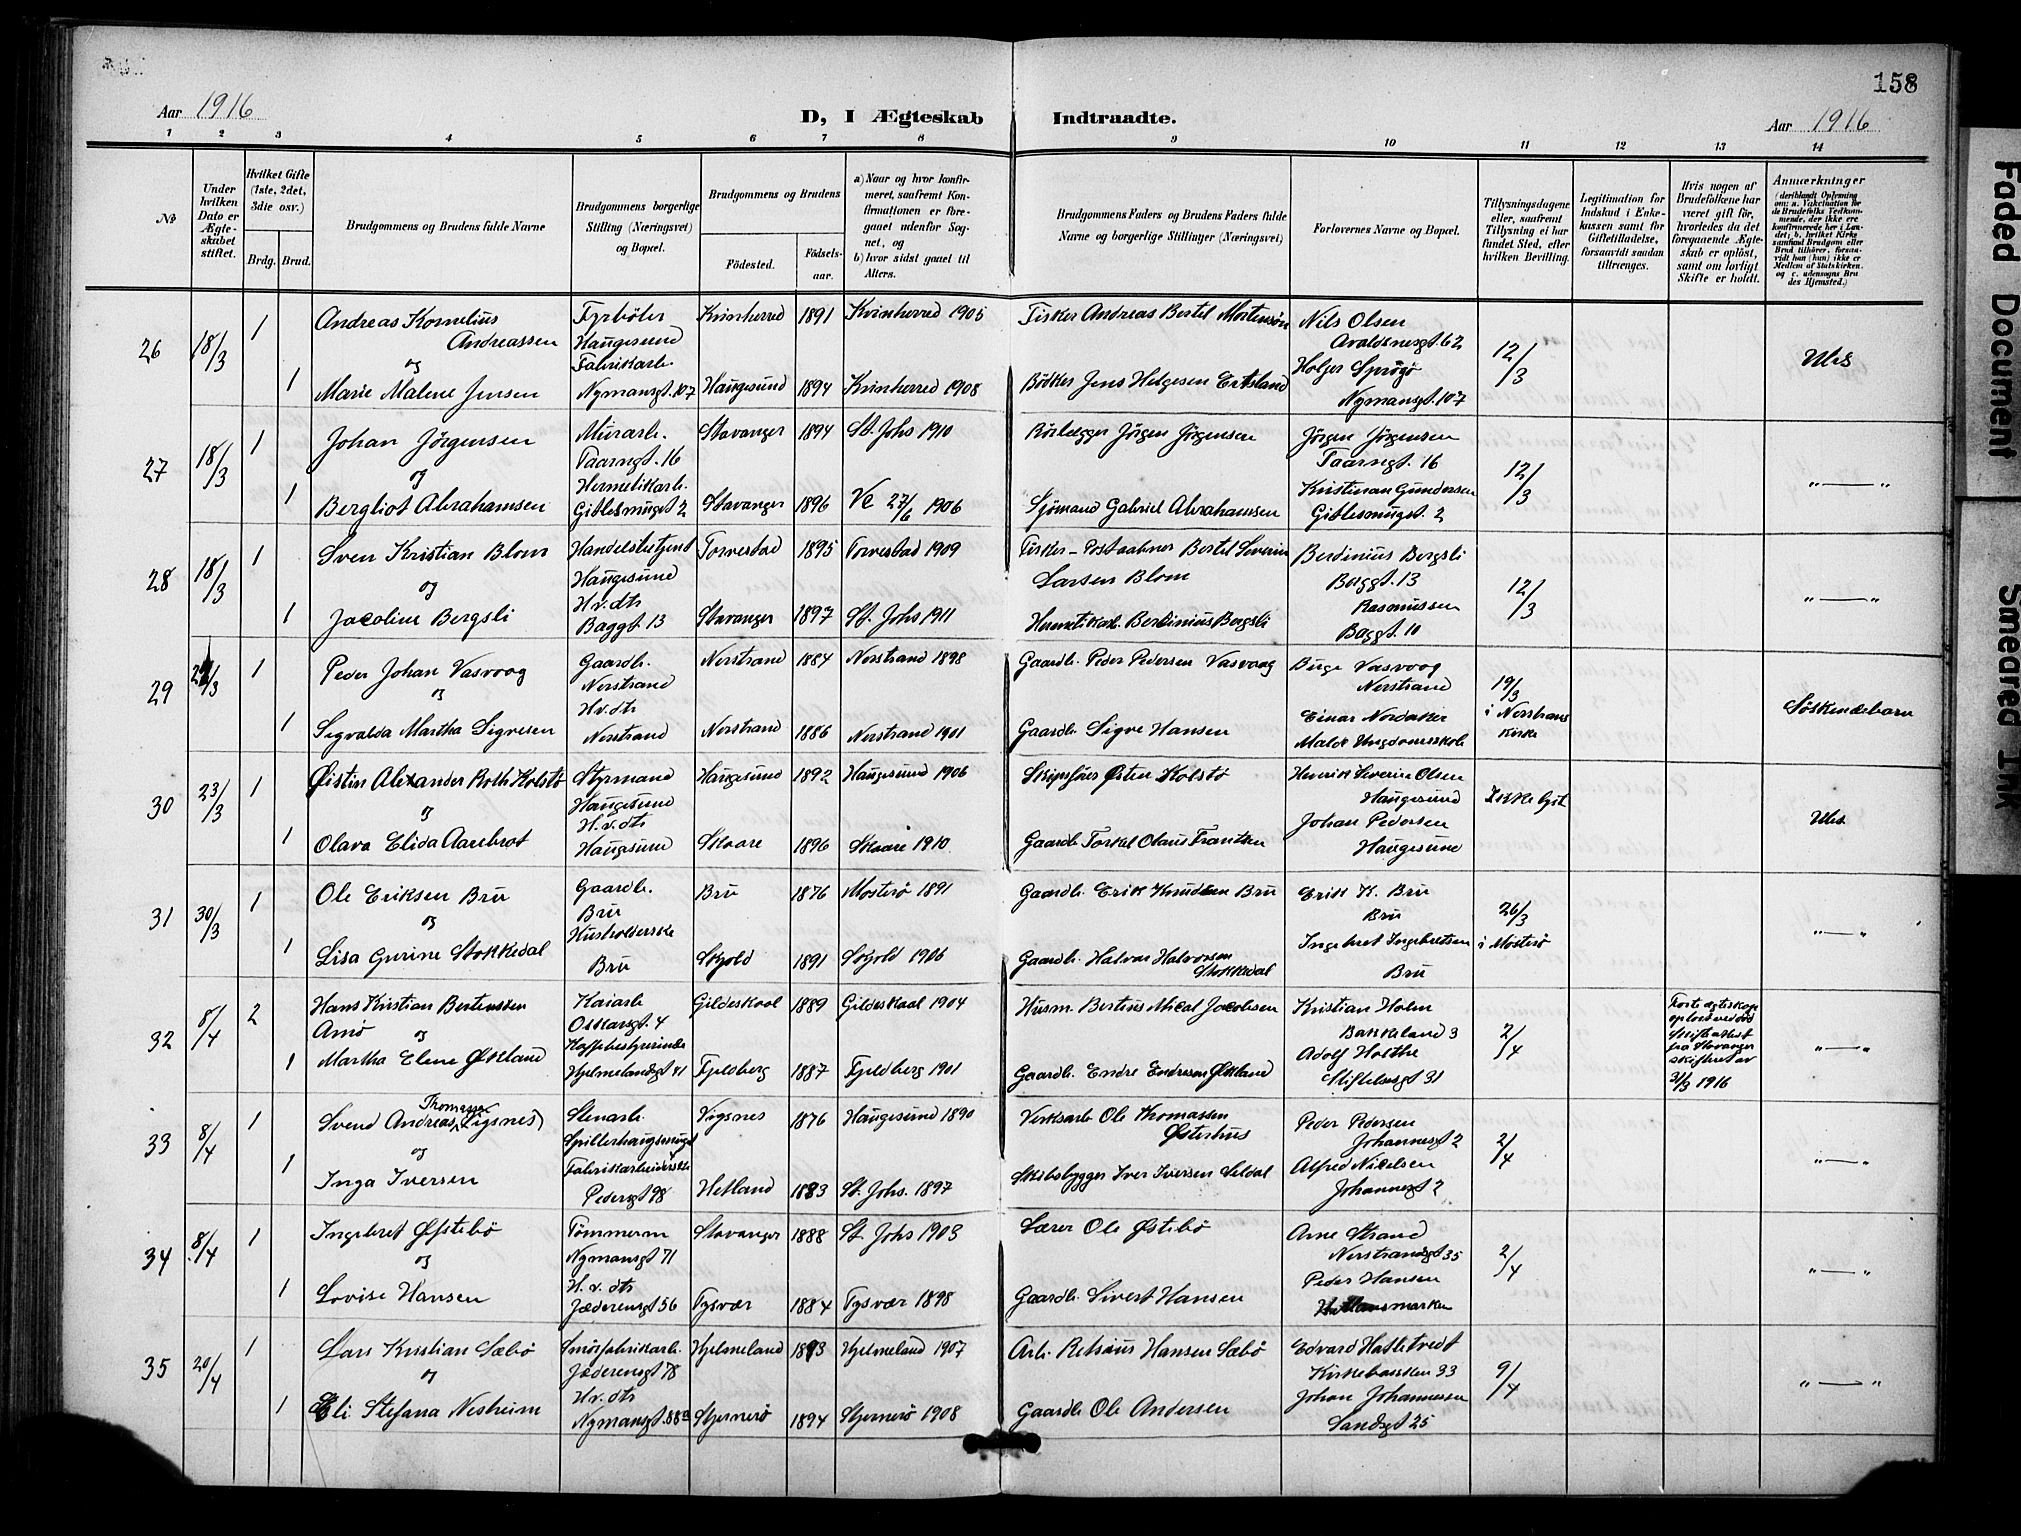 158
Aar 1916
D, I Ægteskab Indtraadte.
Aar 1916
1 2 3 4 5 6 7 8 9 10 11 12 13 14
№
Under hvilken Dato er Ægteskabet stiftet.
Hvilket Gifte (1ste, 2det, 3die osv.)
Brdg. Brud.
Brudgommens og Brudens fulde Navne
Brudgommens borgerlige Stilling (Næringsvei) og Bopæl.
Brudgommens og Brudens
Fødested.
Fødselsaar.
a) Naar og hvor konfirmeret, saafremt Konfirmationen er foregaaet udenfor Sognet, og
b) hvor sidst gaaet til Alters.
Brudgommens Faders og Brudens Faders fulde Navne og borgerlige Stillinger (Næringsvei)
Forlovernes Navne og Bopæl.
Tillysningsdagene eller, saafremt Tillysning ei har fundet Sted, efter hvilken Bevilling.
Legitimation for Indskud i Enkekassen samt for Giftetilladelse, forsaavidt saadan tiltrænges.
Hvis nogen af Brudefolkene har været gift før, hvorledes da det foregaaende Ægteskab er opløst, samt om lovligt Skifte er holdt.
Anmærkninger
(deriblandt Oplysning om: a. Vakcination for de Brudefolks Vedkommende, der ikke ere konfirmerede her i Landet; b. hvilket Kirkesamfund Brudgom eller Brud tilhører, forsaavidt han (hun) ikke er Medlem af Statskirken, og c. udensogns Brudes Hjemsted.)
26 18/3 1 Andreas Kornelius Andreassen
Fyrbøter Haugesund
Kvinherred 1891 Kvinherred 1905
Fisker Andreas Bertel Mortensøn
Nils Olsen
Avaldsnesgt. 62
12/3
og
1 Marie Malene Jensen
Fabrikarb. Nymansgt. 107
Haugesund 1894 Kvinherred 1908
Bødker Jens Helgesen Ertsland
Holger Sprøgø
Nymansgt. 107
27 18/3 1 Johan Jørgensen
Murarb.
Taarngt. 16
Stavanger 1894 St. Johs 1910
Rørlægger Jørgen Jørgensen
Jørgen Jørgensen
Taarngt. 16
12/3
„ — „
og
1 Bergliot Abrahamsen
Hermetikarb.
Stavanger 1896 27/6 1906
Sjømand Gabriel Abrahamsen
Kristinan Gundersen
28 18/3 1 Sven Kristian Blom
Haugesund
Torvestad 1895 Torvestad 1909
Fisker - Postaabner Bertel Severin Larsen Blom
Berdinius Bergsli
Baggt. 13
12/3
„ — „
og
1 Jacoline Bergsli
H.v.dtr
Baggt. 13
Stavanger 1897 St. Johs 1911
Hermetikarb. Berdinius Bergsli
Rasmussen
Baggt. 10
29 1 Peder Johan Vasvoog
Gaardb.
Nerstrand
Nerstrand 1884 Nerstrand 1898
Gaardb. Peder Pedersen Vasvoog
Birge Vasvoog
Nerstrand
19/3
i Nerstrand Kirke
Søskendebarn
og
1 Sigvalda Martha Sigvesen
H.v.dtr
Nerstrand
Nerstrand 1886 Nerstrand 1901
Gaardb. Sigve Hansen
Einar Nordaker
Malde Ungdomsskole
30 23/3 1 Østin Alexander Roth Kolstø
Styrmand
Haugesund
Haugesund 1892 Haugesund 1906
Skipsfører Østen Kolstø
Henrik Severin Olsen
Haugesund
Ikke lyst
og
1 Olava Elida Aarebrot
H.v.dtr
Haugesund
Skaare 1896 Skaare 1910
Gaardb. Torkel Olaus Frantzen
Johan Pedersen
Haugesund
31 30/3 1 Ole Eriksen Bru
Gaardb.
Bru
Bru 1876 Mosterø 1891
Gaardb. Erik Knudsen Bru
Erik K. Bru
Bru
26/3
i Mosterø
„ — „
og
1 Lisa Gurine Stokkedal
Husholderske
Bru
Skjold 1891 Skjold 1906
Gaardb. Halvor Halvorsen Stokkedal
Ingebret Ingebretsen
Bru
32 8/4 2 Hans Kristian Bertinssen Arnø
Kaiarb
Oskarsgt. 4
Gildeskaal 1889 Gildeskaal 1904
Husm. Bertius Mical Jacobsen
Kristian Holm
Bakkeland 3
2/4
Første ægteskap opløst ved død
Skifteattest fra Stavanger skifteret av 31/3 1916
„ — „
og
1 Martha Elene Økland
Kaffebestyrerinde
Hjelmelandsgt 41
Fjeldberg 1887 Fjeldberg 1901
Gaardb. Endre Endresen Økland
Adolf Holthe
Stiftelsesgt 31
33 8/4 1 Svend Andreas Thomassen (Vigsnes)
Stenarb.
Vigsnes 1876 Haugesund 1890
Verksarb Ole Thomassen Østerhus
Peder Pedersen
Johannesgt 2
2/4
„ — „
og
1 Inga Iversen
Fabrikarbeiderske
Pedersgt 98
Hetland 1883 St. Johs. 1897
Skibsbygger Iver Iversen Seldal
Alfred Nicelsen
Johannesgt 2
34 8/4 1 Ingebret Østebø
Tømmerm
Nymansgt 71
Stavanger 1888 St. Johs 1903
Lærer Ole Østebø
Arne Strand
Nerstrandsgt 35
2/4
„ — „
og
1 Lovise Hansen
H.v.dtr
Jæderensgt 56
Tysvær 1884 Tysvær 1898
Gaardb. Sivert Hansen
Peder Hansen
35 20/4 1 Lars Kristian Sæbø
Smørfabrikarb.
Jæderensgt 78
Hjelmeland 1893 Hjelmeland 1907
Arb. Retsius Hansen Sæbø
Edvard Hatletvedt
Kirkebakken 33
9/4
„ — „
og
1 Eli Stefana Nesheim
H.v.dtr
Nymansgt. 88a
Stjernerø 1894 Stjernerø 1908
Gaardb. Ole Andersen
Johan Johannessen
Sandsgt 25
Faded Document
Smeared Ink